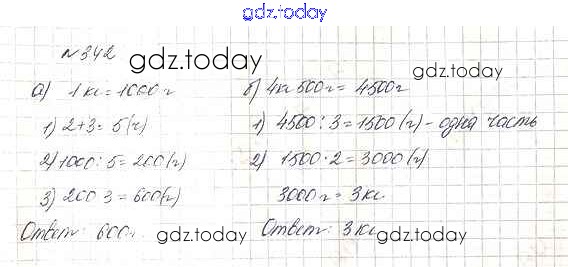 gdz.today
№342
gdz.today
gdz.today
а) 1 кг = 1000 г
1) 2+3=5(ч)
2) 1000:5=200(г)
3) 200 3=600(г)
Ответ: 600г.
gdz.today
б) 4кг 500г = 4500г
1) 4500:3=1500(г) - одна часть
2) 1500·2=3000(г)
3000г = 3кг
Ответ: 3кг
gdz.today